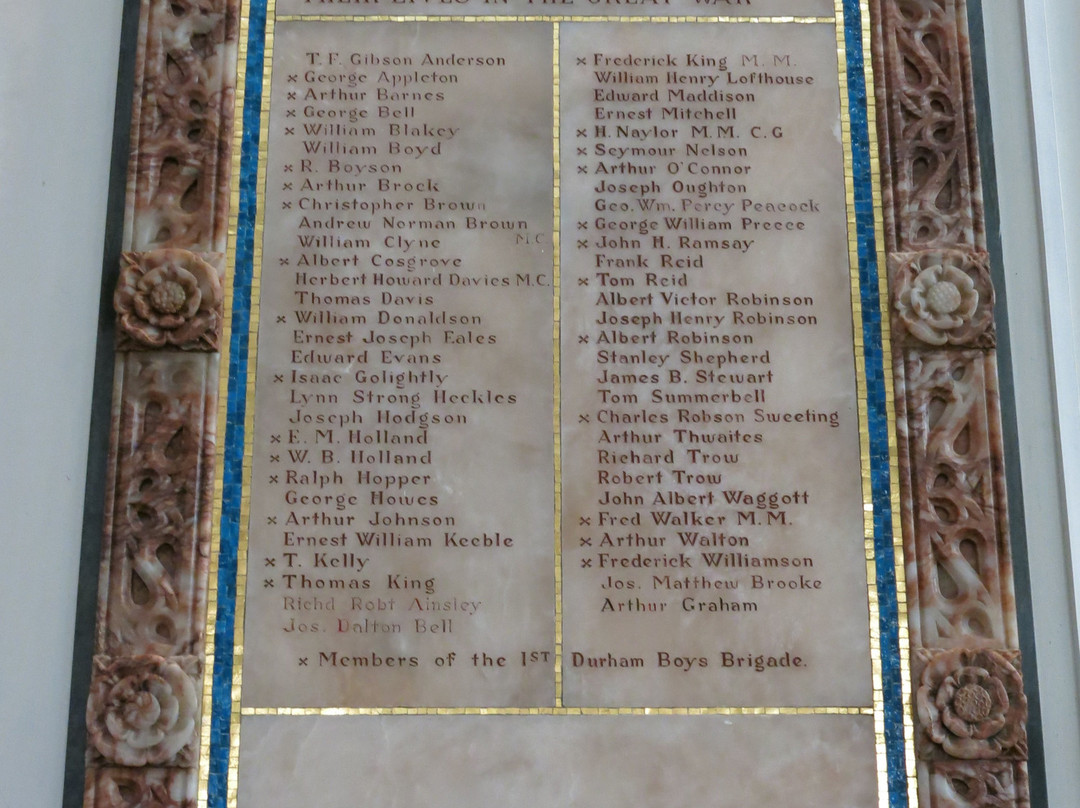 THEIR LIVES IN THE GREAT WAR
T. F. Gibson Anderson
x George Appleton
x Arthur Barnes
x George Bell
x William Blakey
William Boyd
x R. Boyson
x Arthur Brock
x Christopher Brown
Andrew Norman Brown M.C
William Clyne
x Albert Cosgrove
Herbert Howard Davies M.C.
Thomas Davis
x William Donaldson
Ernest Joseph Eales
Edward Evans
x Isaac Golightly
Lynn Strong Heckles
Joseph Hodgson
x E. M. Holland
x W. B. Holland
x Ralph Hopper
George Howes
x Arthur Johnson
Ernest William Keeble
x T. Kelly
x Thomas King
Richd Robt Ainsley
Jos. Dalton Bell
x Frederick King M. M.
William Henry Lofthouse
Edward Maddison
Ernest Mitchell
x H. Naylor M.M. C.G
x Seymour Nelson
x Arthur O'Connor
Joseph Oughton
Geo. Wm. Percy Peacock
x George William Preece
x John H. Ramsay
Frank Reid
x Tom Reid
Albert Victor Robinson
Joseph Henry Robinson
x Albert Robinson
Stanley Shepherd
James B. Stewart
Tom Summerbell
x Charles Robson Sweeting
Arthur Thwaites
Richard Trow
Robert Trow
John Albert Waggott
x Fred Walker M.M.
x Arthur Walton
x Frederick Williamson
Jos. Matthew Brooke
Arthur Graham
x Members of the 1ST Durham Boys Brigade.